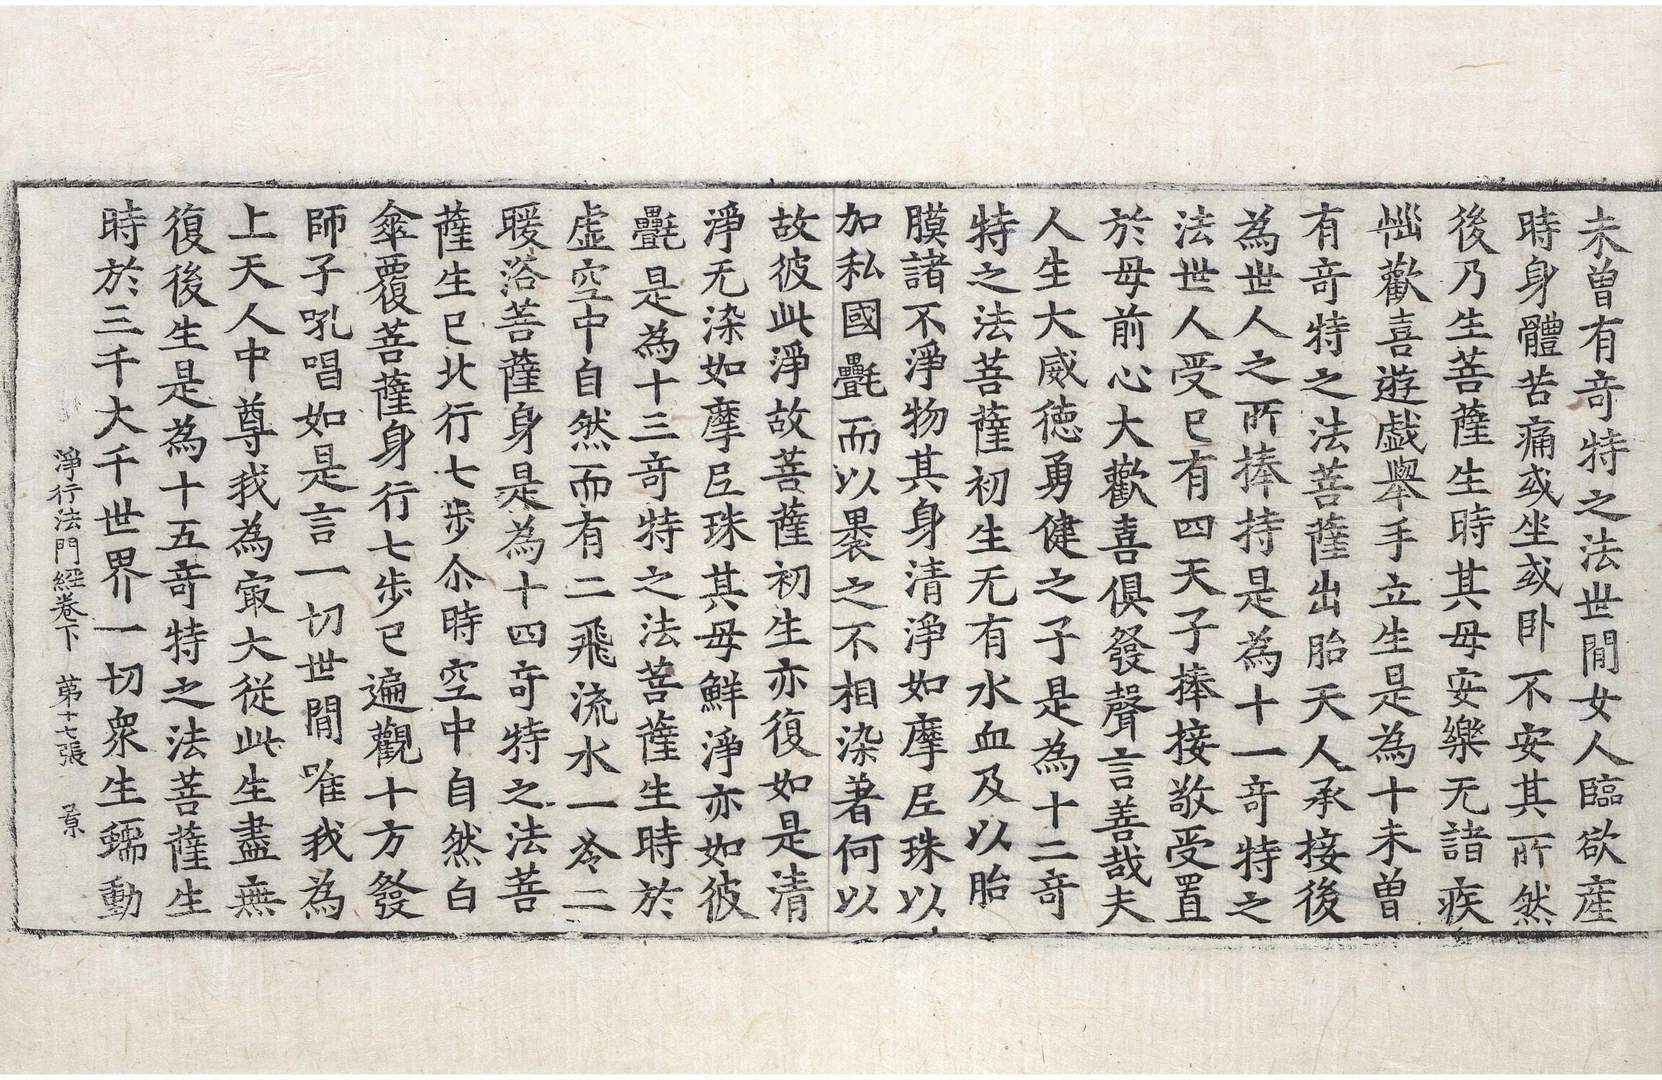 未曾有奇特之法世閒女人臨欲產
時身體苦痛或坐或卧不安其所然
後乃生菩薩生時其母安樂无諸疾
惱歡喜遊戯舉手立生是為十未曾
有奇特之法菩薩出胎天人承接後
為世人之所捧持是為十一奇特之
法世人受已有四天子捧接敬受置
於母前心大歡喜俱發聲言善哉夫
人生大威德勇健之子是為十二奇
特之法菩薩初生无有水血及以胎
膜諸不淨物其身清淨如摩尼珠以
加私國㲲而以褁之不相染著何以
故彼此淨故菩薩初生亦復如是清
淨无染如摩尼珠其母鮮淨亦如彼
㲲是為十三奇特之法菩薩生時於
虛空中自然而有二飛流水一冷二
暖浴菩薩身是為十四奇特之法菩
薩生已北行七步尒時空中自然白
傘覆菩薩身行七步已遍觀十方發
師子吼唱如是言一切世閒唯我為
上天人中尊我為㝡大從此生盡無
復後生是為十五奇特之法菩薩生
時於三千大千世界一切衆生蠕動
淨行法門經卷下　第十七張　景